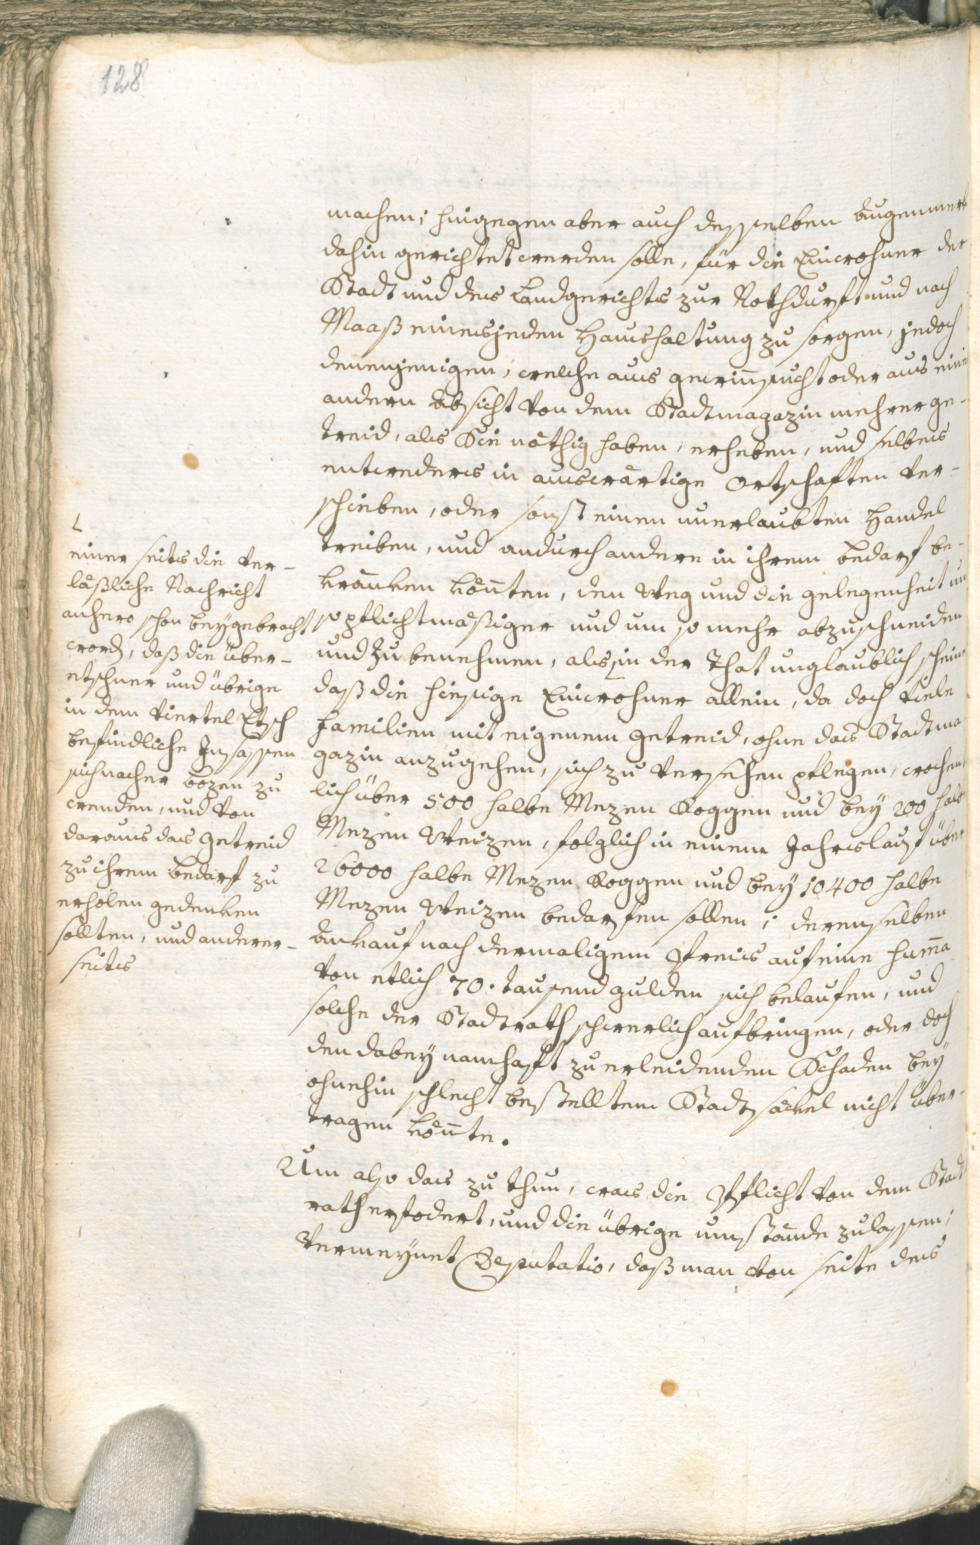 128
machen; hingegen aber auch desselben Augenmerk
dahin gerichtet werden solle, für die Einwohner der
Stadt und des Landgerichts zur Nothdurft und nach
Maaß eines jeden Haushaltung zu sorgen, jedoch
denenjenigen, welche aus gewinnsucht oder aus eine
andern Absicht von dem Stadtmagazin mehrer ge-
treid, als Sie nöthig haben, erheben, und selbes
entweders in auswärtige Ortschaften ver-
schieben, oder sonst einen unerlaubten Handel
treiben, und andurch andere in ihrem bedarf be-
kränken könnten, den Weg und die gelegenheit um
so pflichtmäßiger und um so mehr abzuschneiden
und zu benehmen, als in der That unglaublich schein
daß die hiesige Einwohner allein, da doch viele
Familien mit eigenem getreid, ohne das Stadtma
gazin anzugehen, sich zu versehen pflegen, wochent
lich über 500 halbe Mezen Roggen und bey 200 halbe
Mezen Weizen, folglich in einem Jahrslauf über
26000 halbe Mezen Roggen und bey 10400 halbe
Mezen Weizen bedarfen sollen; derenselben
Ankauf nach dermaligem Preis auf eine Summa
von etlich 70. tausend gulden sich belaufen, und
solche der Stadtrath schwerlich aufbringen, oder doch
den dabey namhaft zu erleidenden Schaden bey
ohnehin schlecht bestelltem Stadtsäckel nicht über-
tragen könnte.
Um also das zu thun, was die Pflicht von dem Stadt
rath erfodert, und die übrige umstände zulassen;
Vermeynet Deputatio, daß man von seite des
einer seits die ver-
läßliche Nachricht
anhero schon beygebracht
word, daß die über-
etscher und übrige
in dem Viertel Etsch
befindliche Insassen
sich nacher Bozen zu
wenden, und von
daraus das Getreid
zu ihrem bedarf zu
erholen gedenken
sollten, und anderer-
seits